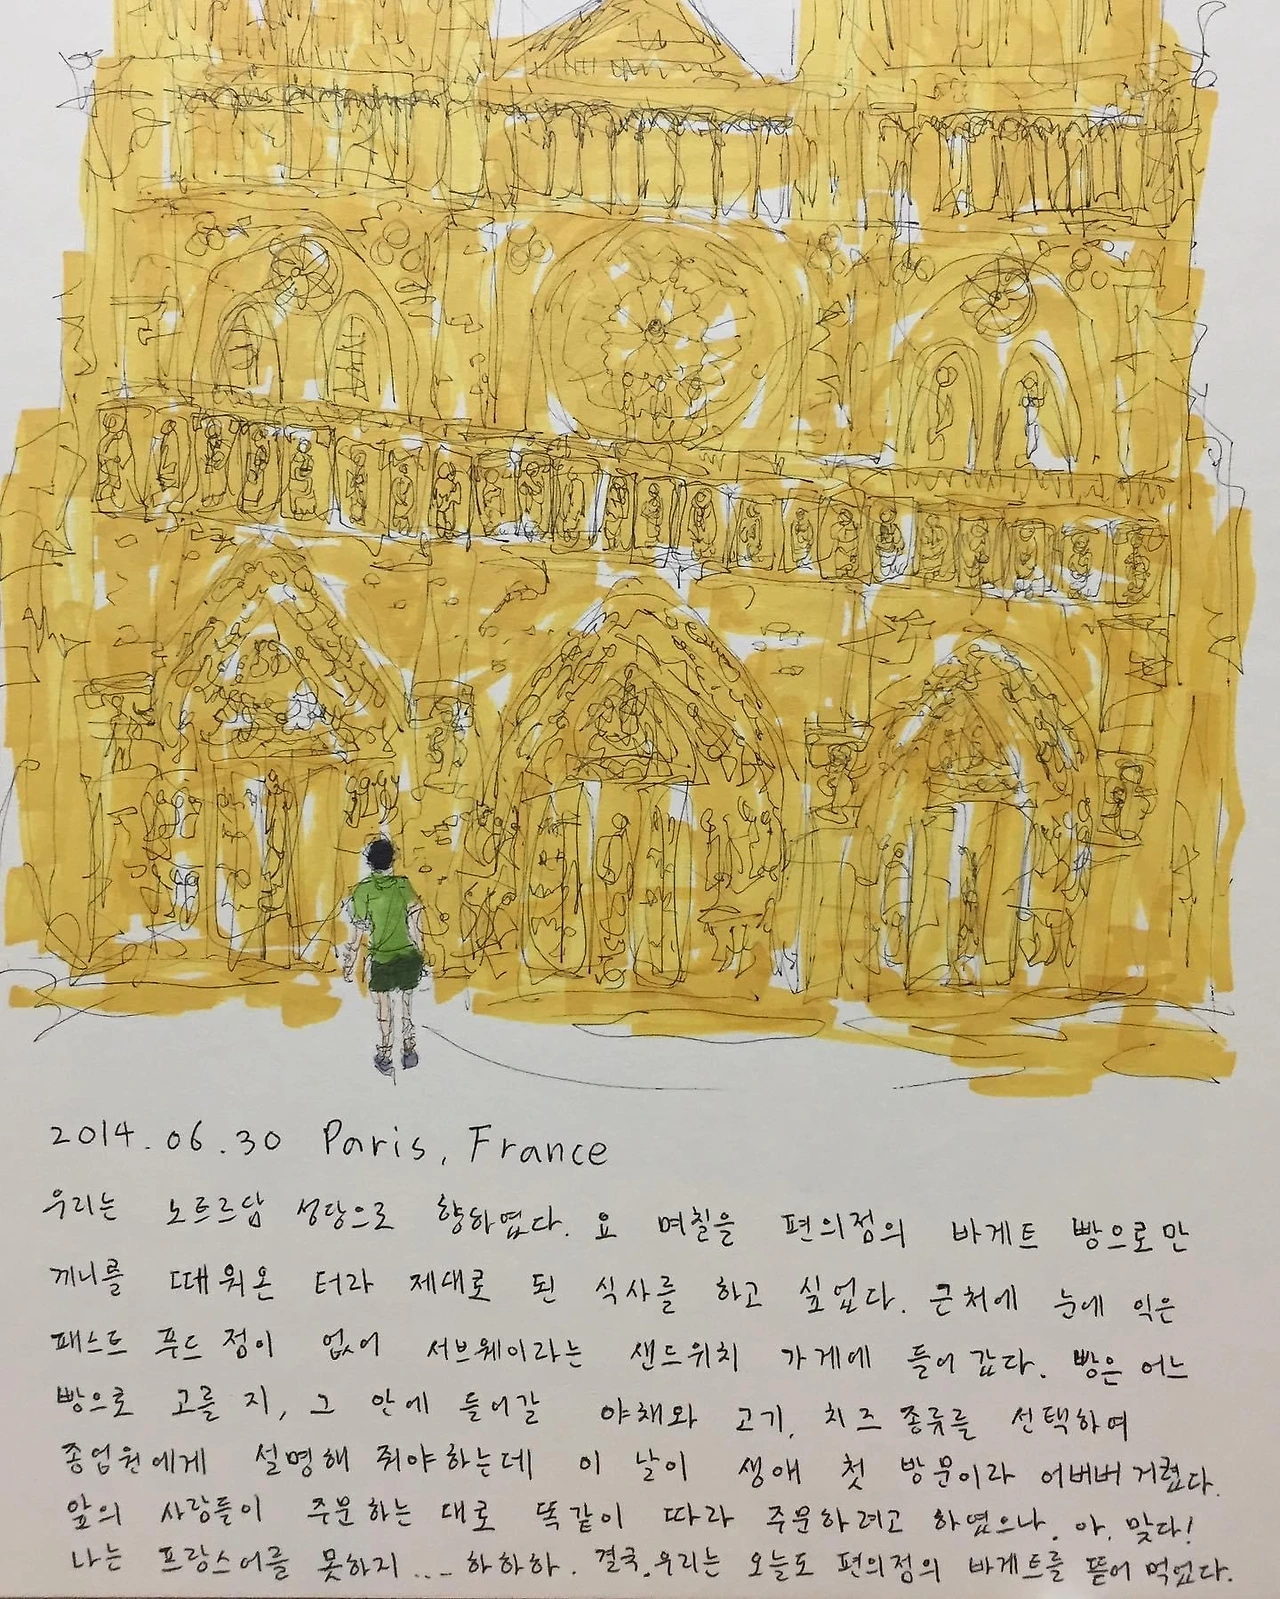 2014.06.30 Paris, France
우리는 노트르담 성당으로 향하였다. 요 며칠을 편의점의 바게트 빵으로만
끼니를 때워온 터라 제대로 된 식사를 하고 싶었다. 근처에 눈에 익은
패스트 푸드 점이 없어 서브웨이라는 샌드위치 가게에 들어갔다. 빵은 어느
빵으로 고를 지, 그 안에 들어갈 야채와 고기, 치즈 종류를 선택하여
종업원에게 설명해 줘야하는데 이 날이 생애 첫 방문이라 어버버 거렸다.
앞의 사람들이 주문하는 대로 똑같이 따라 주문하려고 하였으나. 아. 맞다!
나는 프랑스어를 못하지... 하하하. 결국, 우리는 오늘도 편의점의 바게트를 뜯어 먹었다.